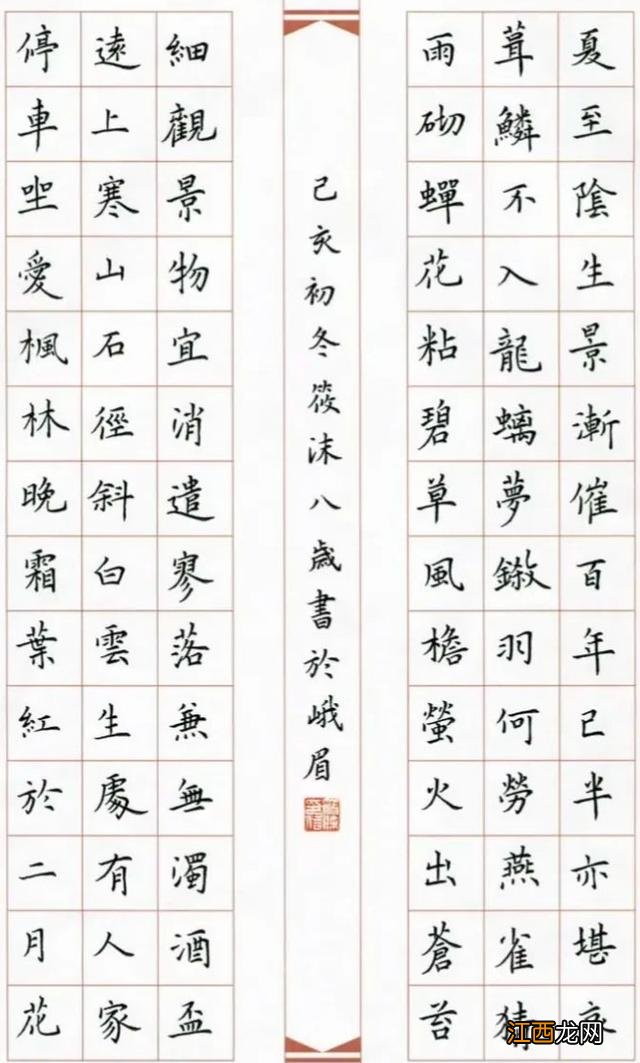 夏至陰生景漸催百年已半亦堪哀
葺鱗不入龍螭夢鎩羽何勞燕雀猜
雨砌蟬花粘碧草風檐螢火出蒼苔
己亥初冬筱沫八歲書於峨眉
細觀景物宜消遣寥落兼無濁酒盃
遠上寒山石徑斜白雲生處有人家
停車坐愛楓林晚霜葉紅於二月花
江西龙网